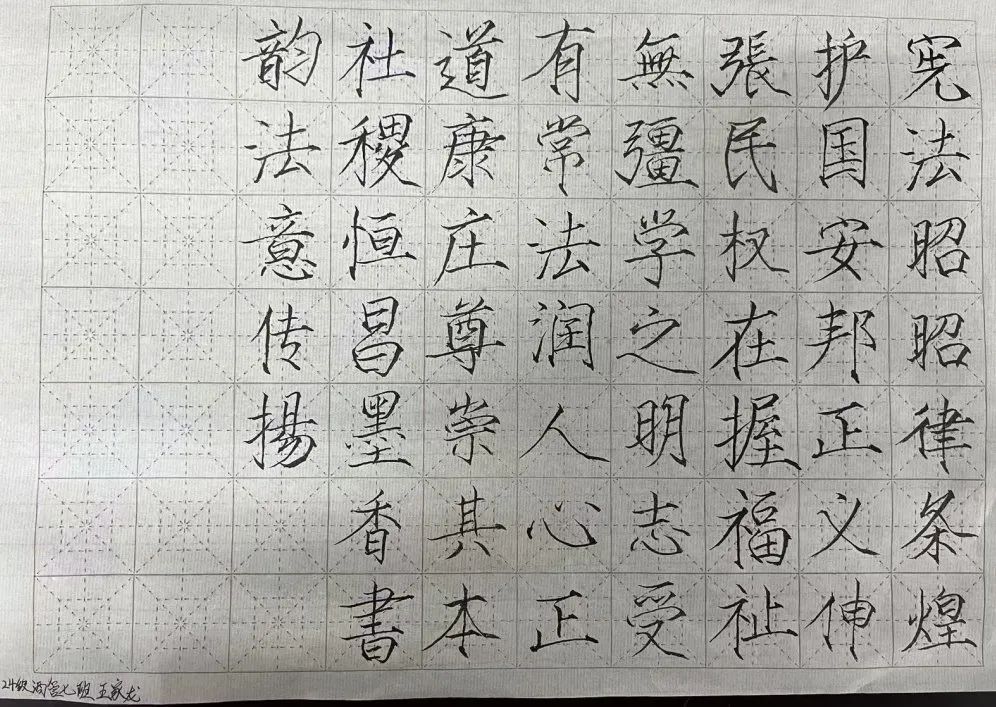 宪法昭昭律条煌
护国安邦正义伸
張民权在握福祉
無彊学之明志受
有常法润人心正
道康庄尊崇其本
社稷恒昌墨香書
韵法意传揚
24级 七班 王家龙